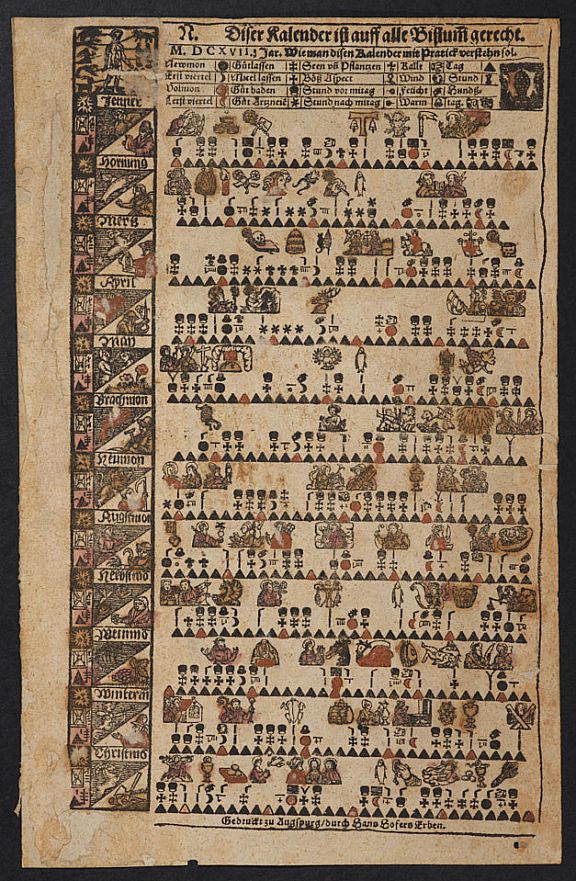 N. Diser Kalender ist auff alle Bistum gerecht.
M. D C XVII. Jar. Wie man disen Kalender mit Pratick verstehn sol.
Newmon Gůtlassen Seen vñ Pflantzen Kalt Tag
Erst viertel Mitel lassen Böß Aspect Wind Stund
Volmon Gůt baden Stund vor mitag Feücht Hundß
Letst viertel Gůt Artznei Stund nach mitag Warm tag.
Jenner
Hornung
Mertz
April
May
Brachmon
Heümon
Augstmon
Herbstmo
Weinmo
Wintermo
Christmo
Gedruckt zu Augspurg/durch Hans Hofers Erben.